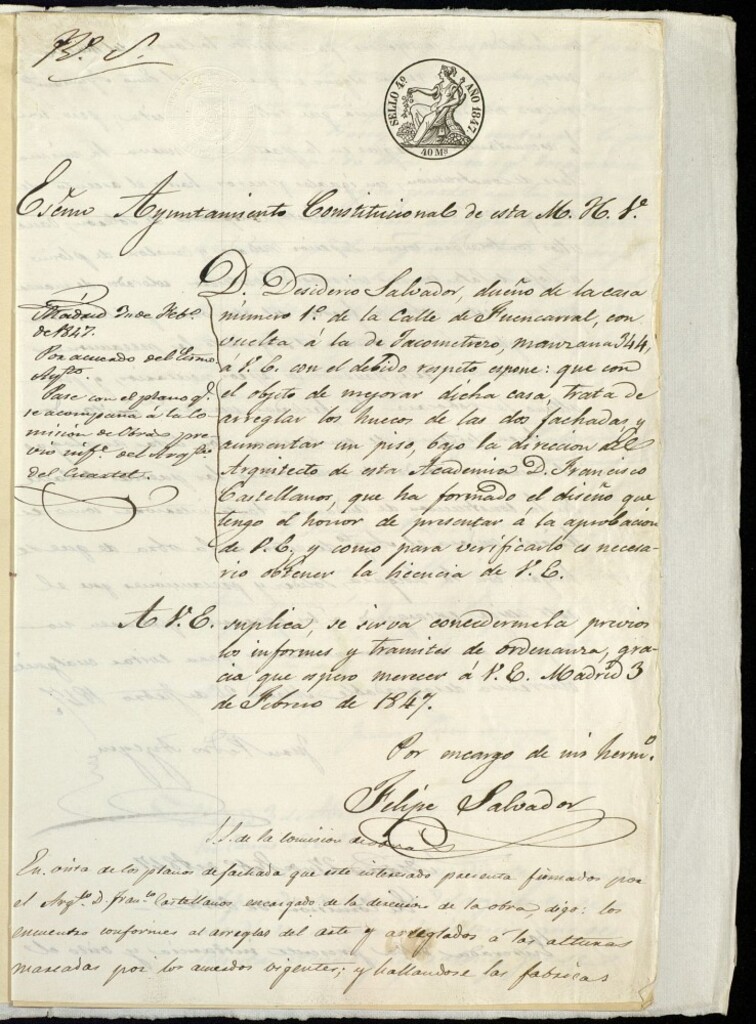 Bº. S.
SELLO 4º AÑO 1847
40 Ms
Escmo Ayuntamiento Constitucional de esta M. H. Vª.
D. Desiderio Salvador, dueño de la casa
número 1º. de la Calle de Fuencarral, con
vuelta á la de Jacometrezo, manzana 344,
á V. E. con el debido respeto espone: que con
el objeto de mejorar dicha casa, trata de
arreglar los huecos de las dos fachadas, y
aumentar un piso, bajo la direccion del
Arquitecto de esta Academia D. Francisco
Castellanos, que ha formado el diseño que
tengo el honor de presentar á la aprobacion
de V. E. y como para verificarlo es necesa-
rio obtener la licencia de V. E.
Madrid de Febº.
de 1847.
Por acuerdo del Escmo.
Aytº.
Pase con el plano q.
se acompaña á la Co-
mision de Obras pre-
vio infe. del Arqto.
del Cuartel.
A V. E. suplica, se sirva concedermela previos
los informes y tramites de ordenanza, gra-
cia que espero merecer á V. E. Madrid 3
de Febrero de 1847.
Por encargo de mi hermº.
Felipe Salvador
S.S. de la Comision de obras
En vista de los planos de fachada que este interesado presenta firmados por
el Arqto. D. Franco. Castellanos encargado de la direccion de la obra, digo: los
encuentro conformes al arreglo del arte y arreglados á las alturas
marcadas por los acuerdos vigentes; y hallandose las fabricas